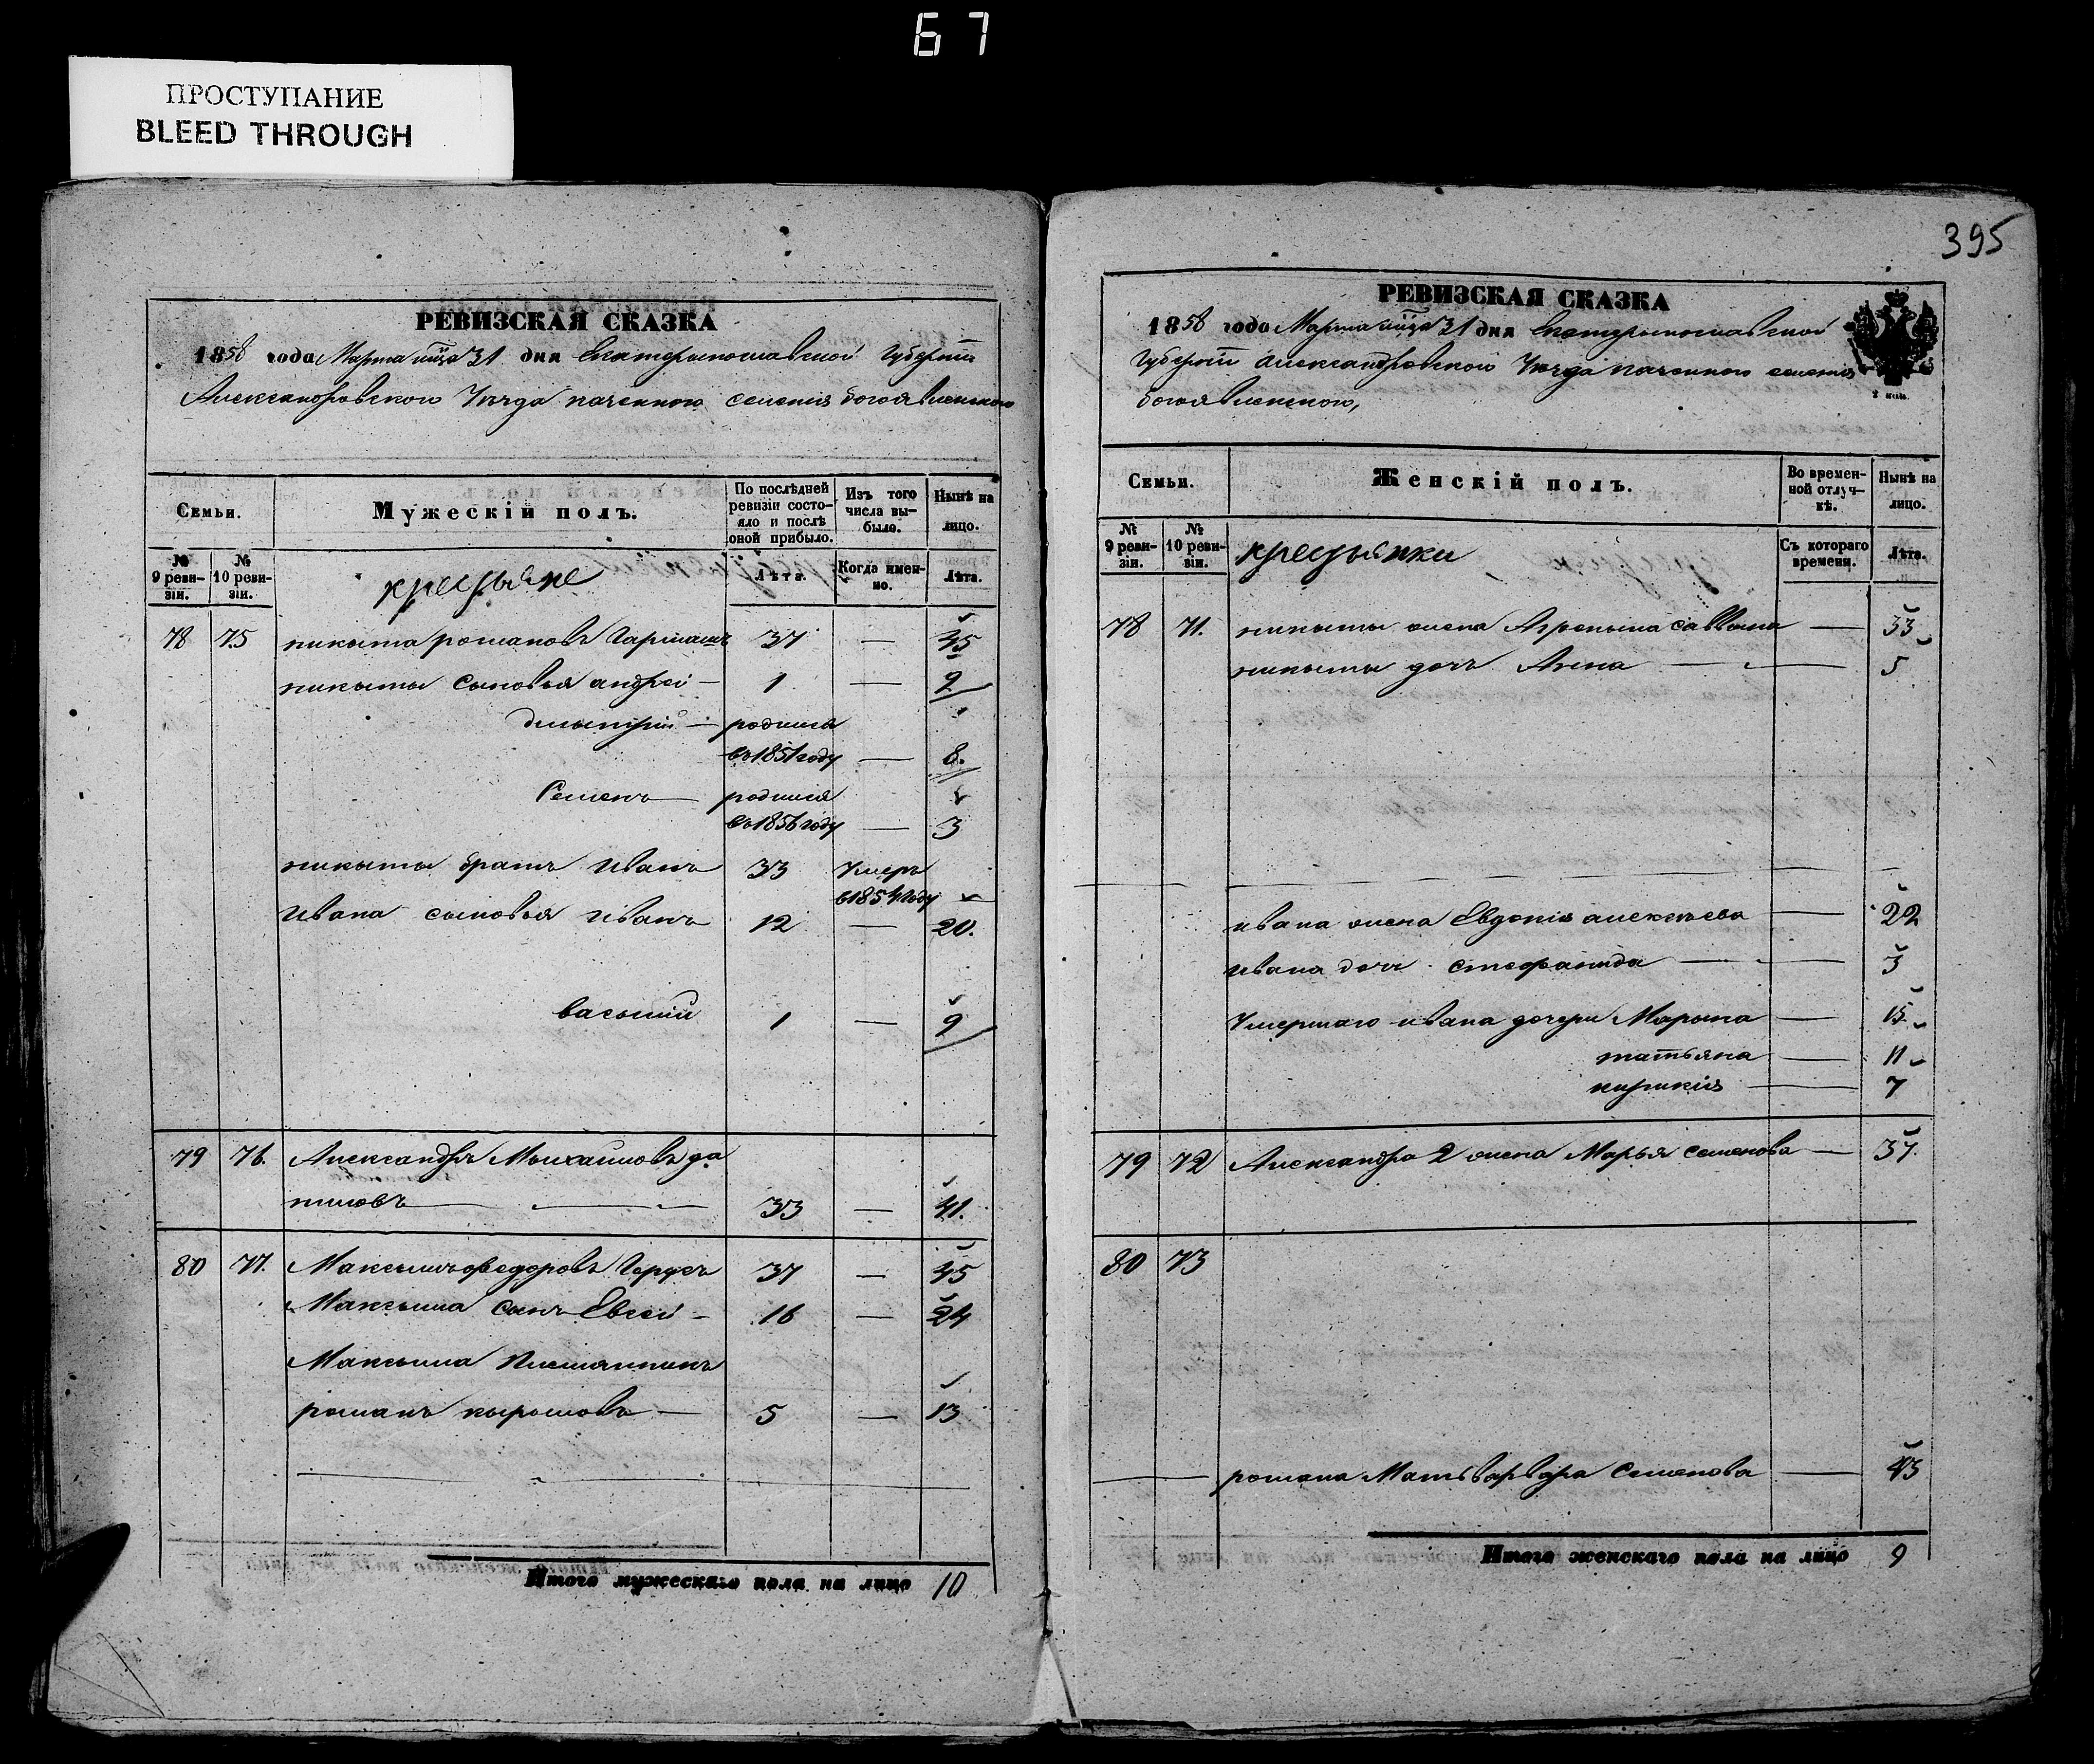 67
ПРОСТУПАНИЕ
BLEED THROUGH
РЕВИЗСКАЯ СКАЗКА
1858 года Марта мца 31 дня Екатеринославской Губернии
Александровского Уезда казенного селения богоявленского
Семьи.
Мужескій полъ.
По послѣдней ревизіи состояло и послѣ оной прибыло.
Изъ того числа выбыло.
Нынѣ на лицо.
№ 9 ревизіи.
№ 10 ревизіи.
крестьяне
Лѣта.
Когда именно.
Лѣта.
78 75 никыта романовъ 37 — 45
никыты сыновья андрей — 1 — 9
дмытрий — родился
въ 1851 году — 8.
Семенъ — родился
въ 1856 году — 3
никыты братъ Иванъ 33 Умеръ
в 1854 году
Ивана сыновья иванъ 12 — 20.
васылий 1 — 9
79 76. Александръ Мыхайловъ да
ниловъ — 33 — 41.
80 77. Максымъ федоровъ 37 — 45
Максыма сынъ Евсей — 16 — 24
Максыма племянникъ
романъ — 5 — 13
Итого мужескаго пола на лицо 10
395
РЕВИЗСКАЯ СКАЗКА
1858 года Марта мца 31 дня Екатеринославской
Губернии Александровского Уезда казенного селения
богоявленского,
Семьи.
Женскій полъ.
Во временной отлучкѣ.
Нынѣ на лицо.
№ 9 ревизіи.
№ 10 ревизіи.
крестьянки
Съ котораго времени.
Лѣта.
78 71. никыты жена Агрепына саввына — 33
никыты доч Анна — 5
ивана жена Евдокия алексъева — 22
ивана доч стефанида — 3
Умершаго ивана дочери Марына — 15
татьяна — 11
7
79 72 Александра 2 жена Марья семенова — 37.
80 73
романа Мать варвара Семенова — 43
Итого женскаго пола на лицо 9